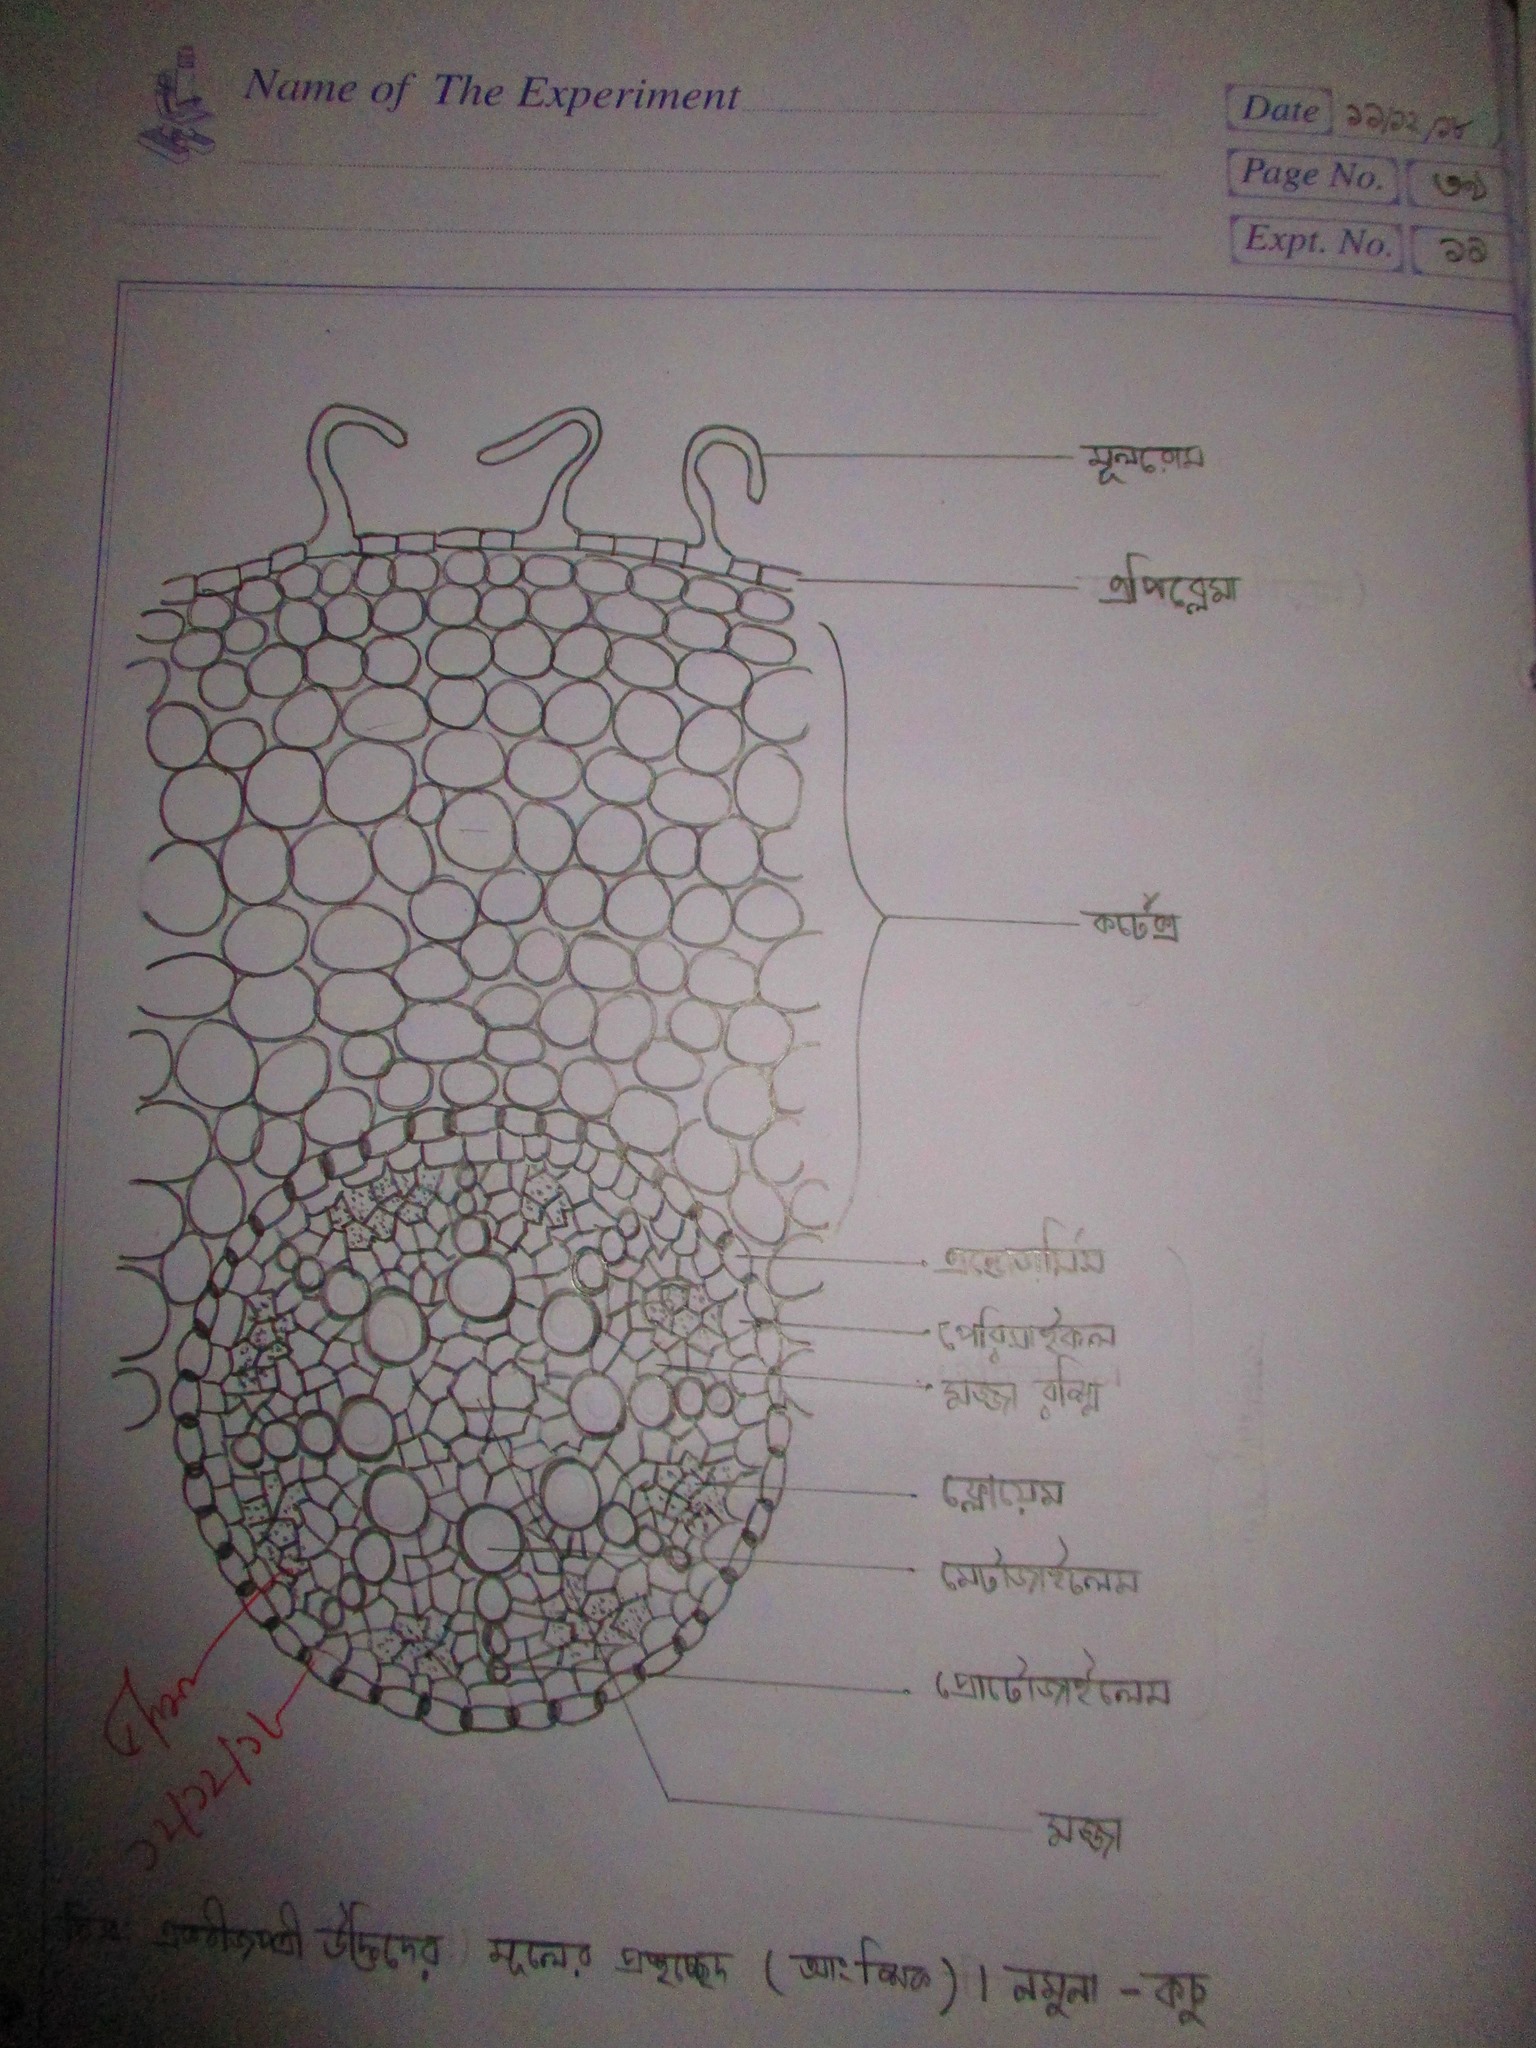 Name of The Experiment
Date ১১/১২/১৮
Page No. ৩১
Expt. No. ১১
মূলরোম
এপিব্লেমা
কর্টেক্স
এন্ডোডার্মিস
পেরিসাইকল
মজ্জা রশ্মি
ফ্লোয়েম
মেটাজাইলেম
প্রোটোজাইলেম
১২/১২/১৮
মজ্জা
চিত্র: একবীজপত্রী উদ্ভিদের মূলের প্রস্থচ্ছেদ (আংশিক)। নমুনা - কচু